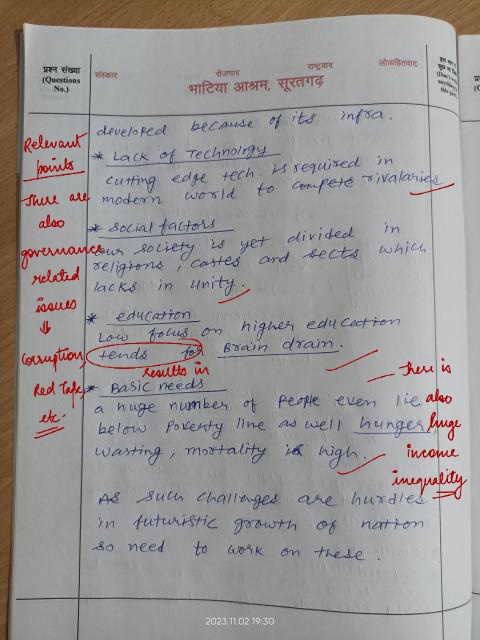 प्रश्न संख्या
(Questions
No.)
संस्कार रोजगार राष्ट्रवाद लोकहितवाद
भाटिया आश्रम, सूरतगढ़
developed because of its infra.
* Lack of Technology
cutting edge tech. is required in
modern world to compete rivalaries
* social factors
our society is yet divided in
religions, castes and sects which
lacks in unity.
* education
Low focus on higher education
tends for Brain drain.
results in
* Basic needs
a huge number of people even lie
below poverty line as well hunger,
wasting, mortality is high.
As such challenges are hurdles
in futuristic growth of nation
so need to work on these.
Relevant
points
There are
also
governance
related
issues
↓
Corruption,
Red Tape,
etc.
There is
also
huge
income
inequality
2023.11.02 19:30